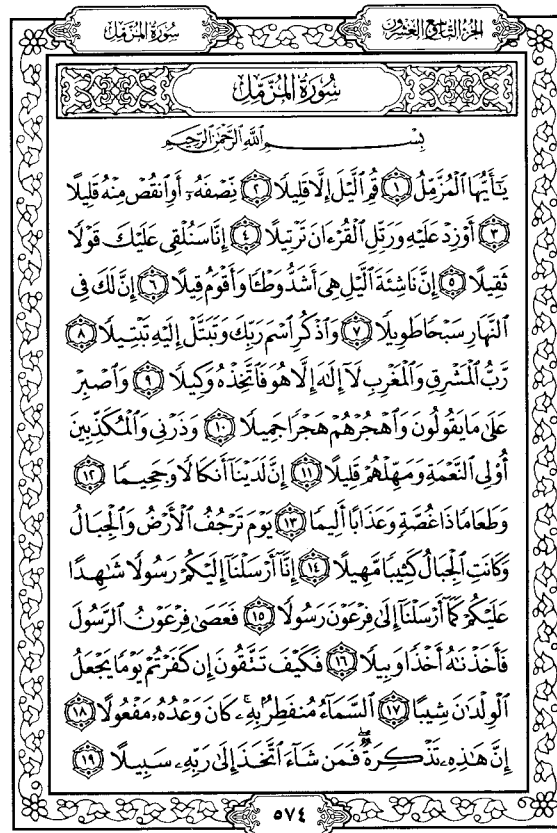 سُورَةُ المُزَّمِّل
الجُزْءُ التَّاسِعُ وَالعِشْرُون
سُورَةُ المُزَّمِّل
بِسْمِ ٱللَّهِ ٱلرَّحْمَٰنِ ٱلرَّحِيمِ
يَٰٓأَيُّهَا ٱلْمُزَّمِّلُ ١ قُمِ ٱلَّيْلَ إِلَّا قَلِيلًا ٢ نِّصْفَهُۥٓ أَوِ ٱنقُصْ مِنْهُ قَلِيلًا
٣ أَوْ زِدْ عَلَيْهِ وَرَتِّلِ ٱلْقُرْءَانَ تَرْتِيلًا ٤ إِنَّا سَنُلْقِى عَلَيْكَ قَوْلًا
ثَقِيلًا ٥ إِنَّ نَاشِئَةَ ٱلَّيْلِ هِىَ أَشَدُّ وَطْـًٔا وَأَقْوَمُ قِيلًا ٦ إِنَّ لَكَ فِى
ٱلنَّهَارِ سَبْحًا طَوِيلًا ٧ وَٱذْكُرِ ٱسْمَ رَبِّكَ وَتَبَتَّلْ إِلَيْهِ تَبْتِيلًا ٨
رَّبُّ ٱلْمَشْرِقِ وَٱلْمَغْرِبِ لَآ إِلَٰهَ إِلَّا هُوَ فَٱتَّخِذْهُ وَكِيلًا ٩ وَٱصْبِرْ
عَلَىٰ مَا يَقُولُونَ وَٱهْجُرْهُمْ هَجْرًا جَمِيلًا ١٠ وَذَرْنِى وَٱلْمُكَذِّبِينَ
أُو۟لِى ٱلنَّعْمَةِ وَمَهِّلْهُمْ قَلِيلًا ١١ إِنَّ لَدَيْنَآ أَنكَالًا وَجَحِيمًا ١٢
وَطَعَامًا ذَا غُصَّةٍ وَعَذَابًا أَلِيمًا ١٣ يَوْمَ تَرْجُفُ ٱلْأَرْضُ وَٱلْجِبَالُ
وَكَانَتِ ٱلْجِبَالُ كَثِيبًا مَّهِيلًا ١٤ إِنَّآ أَرْسَلْنَآ إِلَيْكُمْ رَسُولًا شَٰهِدًا
عَلَيْكُمْ كَمَآ أَرْسَلْنَآ إِلَىٰ فِرْعَوْنَ رَسُولًا ١٥ فَعَصَىٰ فِرْعَوْنُ ٱلرَّسُولَ
فَأَخَذْنَٰهُ أَخْذًا وَبِيلًا ١٦ فَكَيْفَ تَتَّقُونَ إِن كَفَرْتُمْ يَوْمًا يَجْعَلُ
ٱلْوِلْدَٰنَ شِيبًا ١٧ ٱلسَّمَآءُ مُنفَطِرٌۢ بِهِۦ ۚ كَانَ وَعْدُهُۥ مَفْعُولًا ١٨
إِنَّ هَٰذِهِۦ تَذْكِرَةٌ ۖ فَمَن شَآءَ ٱتَّخَذَ إِلَىٰ رَبِّهِۦ سَبِيلًا ١٩
٥٧٤